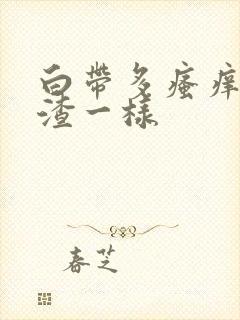 白帶多瘙痒
渣一樣
春芝